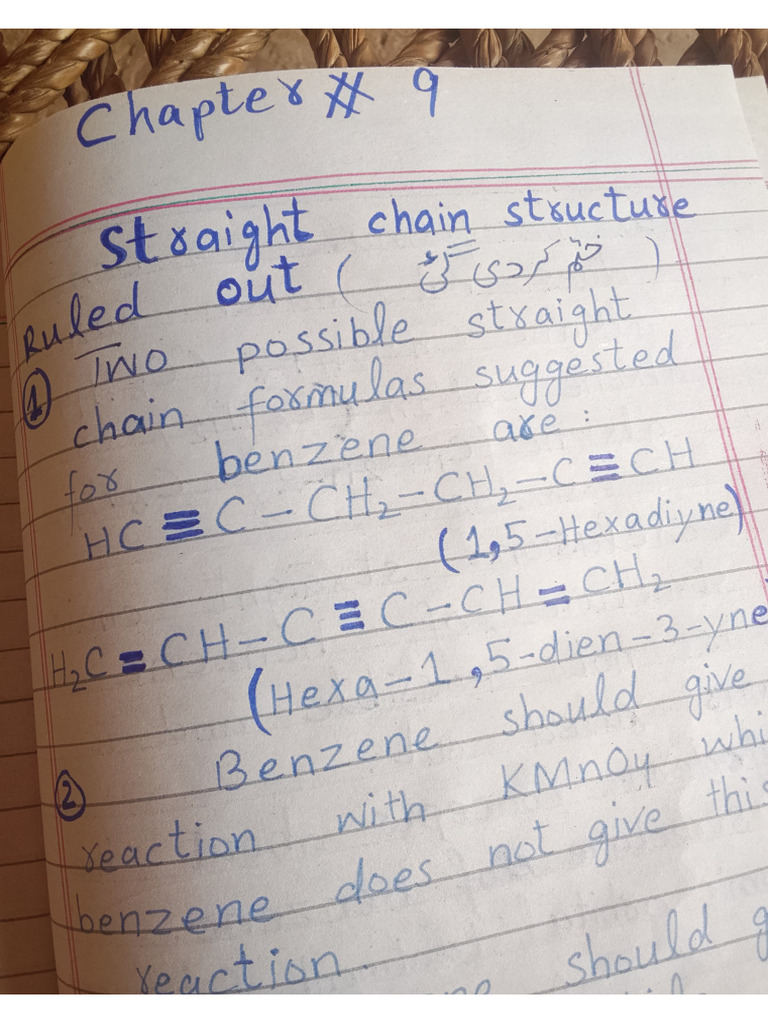 Chapter # 9
Straight chain structure
Ruled out (ختم کردی گئی)
① Two possible straight
chain formulas suggested
for benzene are:
HC≡C-CH₂-CH₂-C≡CH
(1,5-Hexadiyne)
H₂C=CH-C≡C-CH=CH₂
(Hexa-1,5-dien-3-yne
② Benzene should give
reaction with KMnO4 whi
benzene does not give this
reaction.
should g